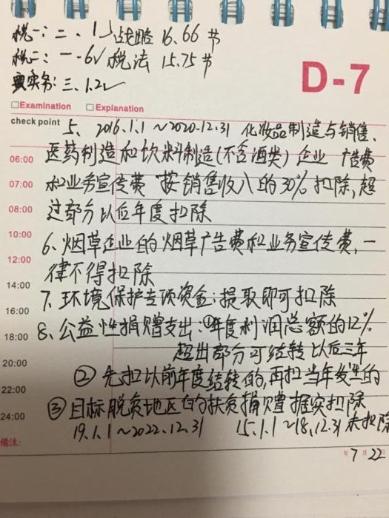 税一: 二、1 战略 16.66 节
税二: 一-6 税法 15.75 节
实务: 三、1.2
D-7
Examination Explanation
check point 5、2016.1.1～2020.12.31 化妆品制造与销售、
医药制造和饮料制造(不含酒类)企业 广告费
06:00
07:00 和业务宣传费 按销售收入的30%扣除,超
08:00 过部分以后年度扣除
10:00 6、烟草企业的烟草广告费和业务宣传费,一
12:00 律不得扣除
14:00 7、环境保护专项资金:提取即可扣除
16:00
18:00 8、公益性捐赠支出:①年度利润总额的12%
超出部分可结转以后三年
20:00
22:00 ②先扣以前年度结转的,再扣当年发生的
24:00 ③目标脱贫地区的扶贫捐赠据实扣除
19.1.1～2022.12.31 15.1.1～18.12.31未扣除
备注:
7 月 22